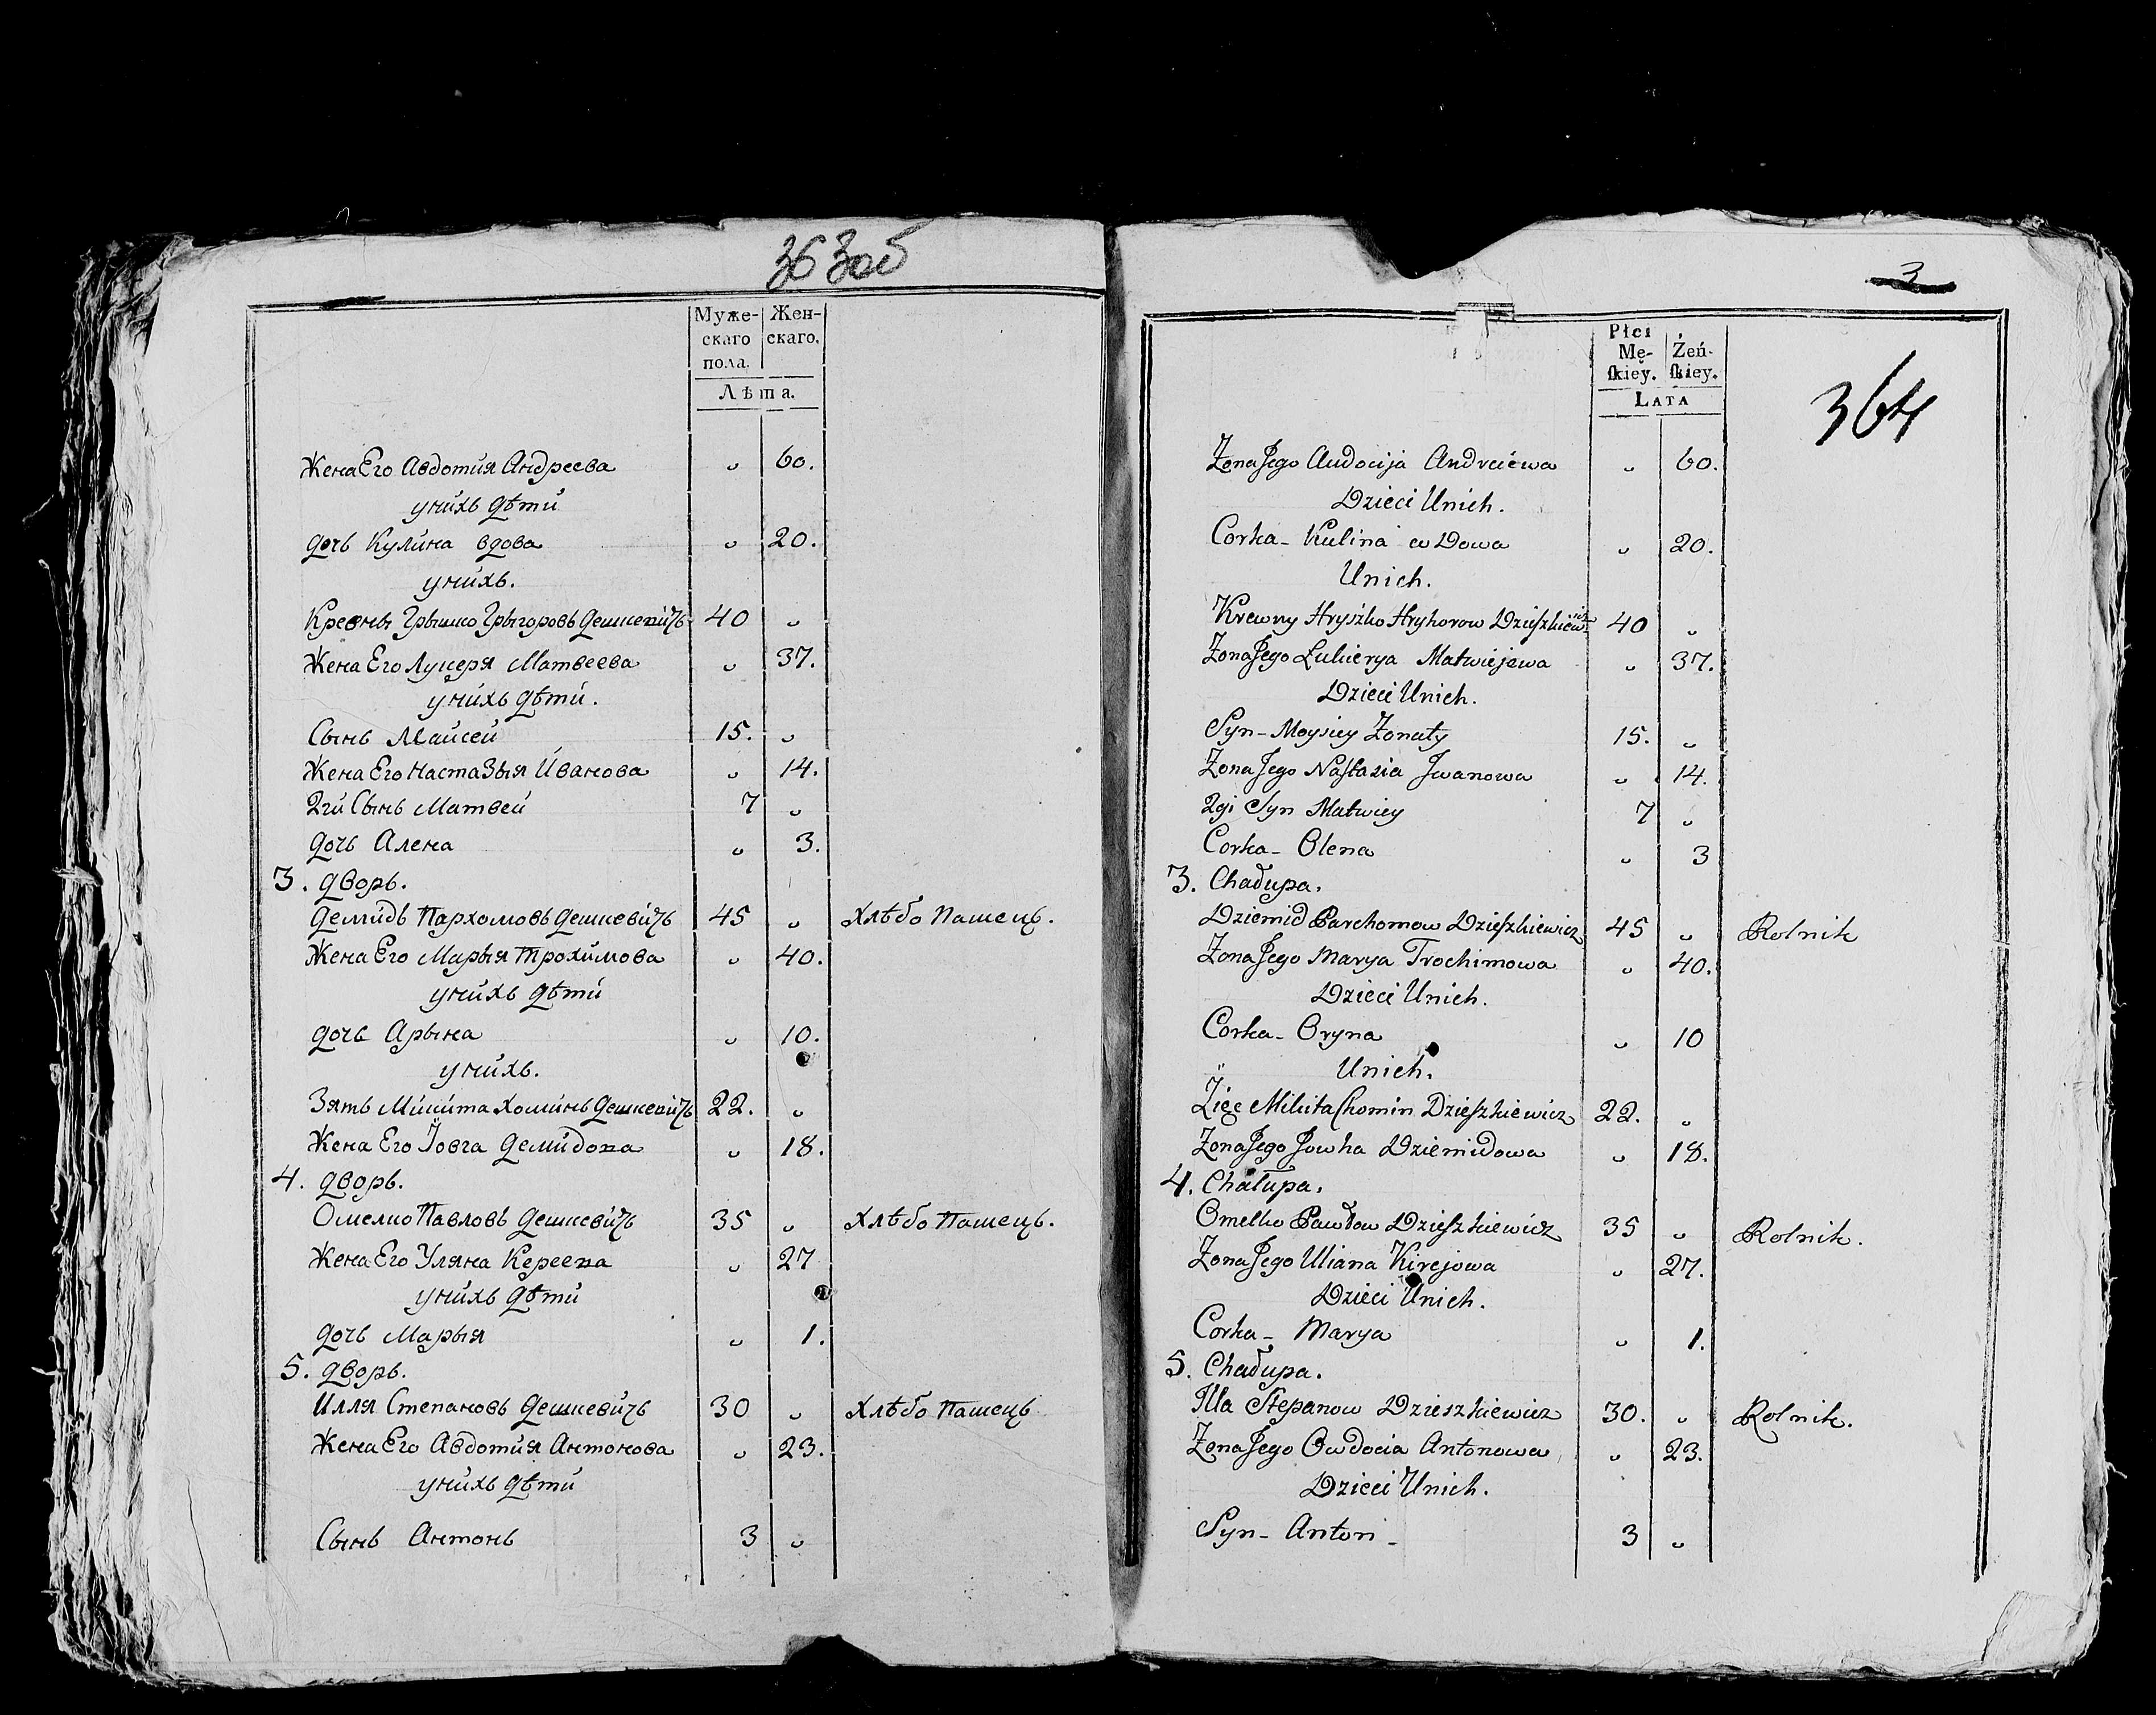 363 об
Муже- Жен-
скаго скаго.
пола.
Лѣта.
Жена Его Авдотия Андреева " 60.
у нихъ дѣти
дочь Кулина вдова " 20.
у нихъ.
Кревны Грышко Грыгоровъ Дешкевичъ 40 "
Жена Его Лукеря Матвеева " 37.
у нихъ дѣти.
Сынъ Майсей 15. "
Жена Его Настазыя Иванова " 14.
2гй Сынъ Матвей 7 "
дочь Алена " 3.
3. дворъ.
Демидъ Пархомовъ Дешкевичъ 45 " Хлѣбо Пашецъ.
Жена Его Марыя Трохимова " 40.
у нихъ дѣти
дочь Арына " 10.
у нихъ.
Зять Микита Хоминъ Дешкевичъ 22. "
Жена Его Ӏовга Демидова " 18.
4. дворъ.
Омелко Павловъ Дешкевичъ 35 " Хлѣбо Пашецъ.
Жена Его Уляна Кереева " 27
у нихъ дѣти
дочь Марыя " 1.
5. дворъ.
Илля Степановъ Дешкевичъ 30 " Хлѣбо Пашецъ
Жена Его Авдотия Антонова " 23.
у нихъ дѣти
Сынъ Антонъ 3 "
3
364
Płci
Mę- Żeń-
ſkiey. ſkiey.
LATA
Zona Jego Audocija Andreiewa " 60.
Dzieci Unich.
Corka - Kulina wdowa " 20.
Unich.
Krewny Hryszko Hryhorow Dzieſzkiewicz 40 "
Zona Jego Łukierya Matwiejewa " 37.
Dzieci Unich.
Syn - Moysiey Zonaty 15. "
Zona Jego Naſtazia Jwanowa " 14.
2gi Syn Matwiey 7 "
Corka - Olena " 3
3. Chałupa.
Dziemid Parchomow Dzieſzkiewicz 45 " Rolnik
Zona Jego Marya Trochimowa " 40.
Dzieci Unich.
Corka - Oryna " 10
Unich.
Zięc Mikita Chomin Dzieſzkiewicz 22. "
Zona Jego Jowha Dziemidowa " 18.
4. Chałupa.
Omelko Pawłow Dzieſzkiewicz 35 " Rolnik.
Zona Jego Uliana Kirejowa " 27.
Dzieci Unich.
Corka - Marya " 1.
5. Chałupa.
Illa Stepanow Dzieszkiewicz 30. " Rolnik.
Zona Jego Owdocia Antonowa " 23.
Dzieci Unich.
Syn - Anton - 3 "